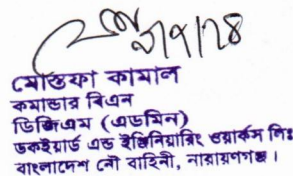 ৯/৭/২৪
মোস্তফা কামাল
কমান্ডার বিএন
ডিজিএম (এডমিন)
ডকইয়ার্ড এন্ড ইঞ্জিনিয়ারিং ওয়ার্কস লিঃ
বাংলাদেশ নৌ বাহিনী, নারায়ণগঞ্জ।